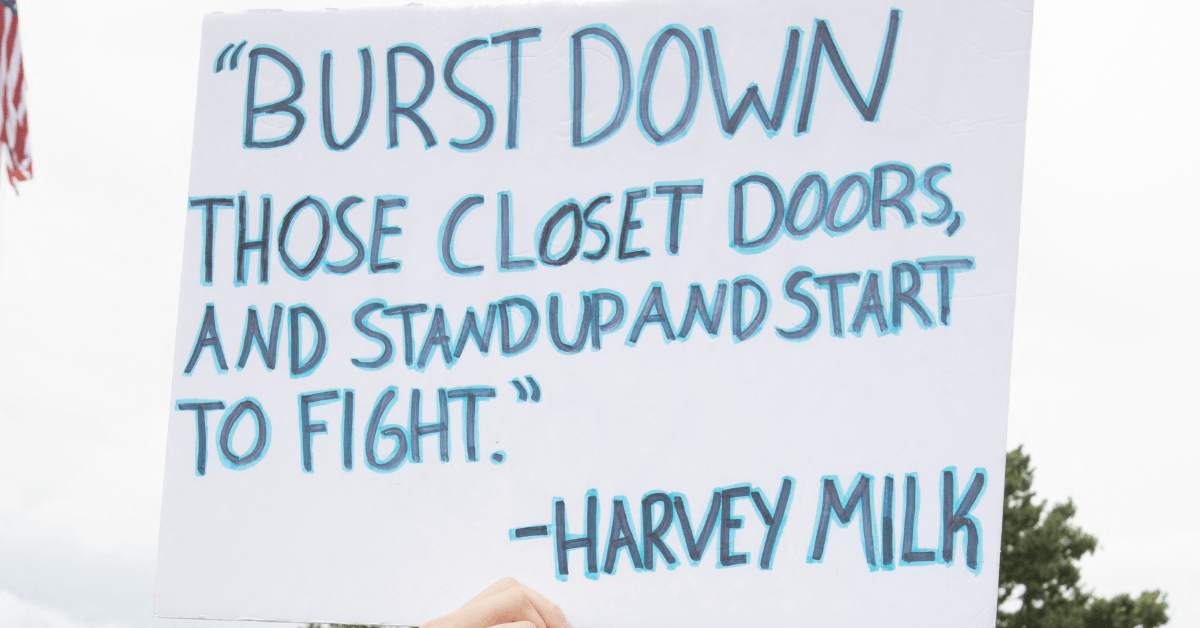 “BURST DOWN
THOSE CLOSET DOORS,
AND STAND UP AND START
TO FIGHT.”
-HARVEY MILK